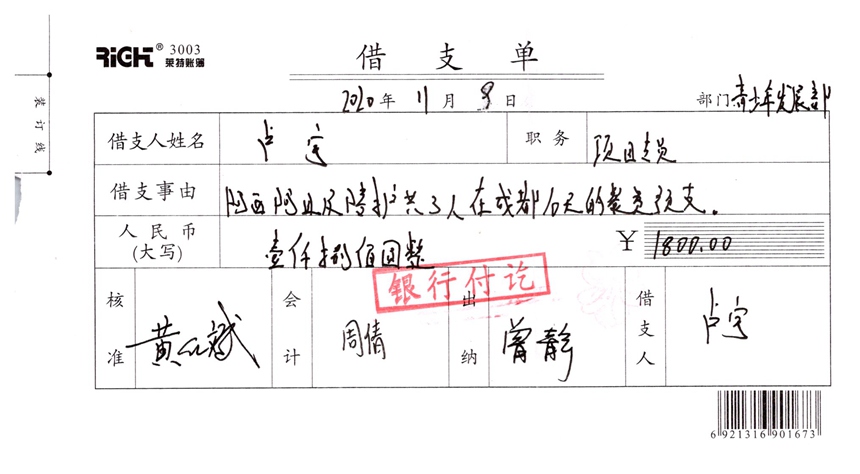 RiGHT® 3003
莱特账簿
借支单
2020年 11月 9日
部门 青少年发展部
装订线
借支人姓名 卢宇 职务 项目专员
借支事由 阿西阿且及陪护共3人在成都10天的餐费预支。
人民币(大写) 壹仟捌佰圆整 ¥ 1800.00
银行付讫
核准 黄 斌 会计 周倩 出纳 曾静 借支人 卢宇
6 921316 901673